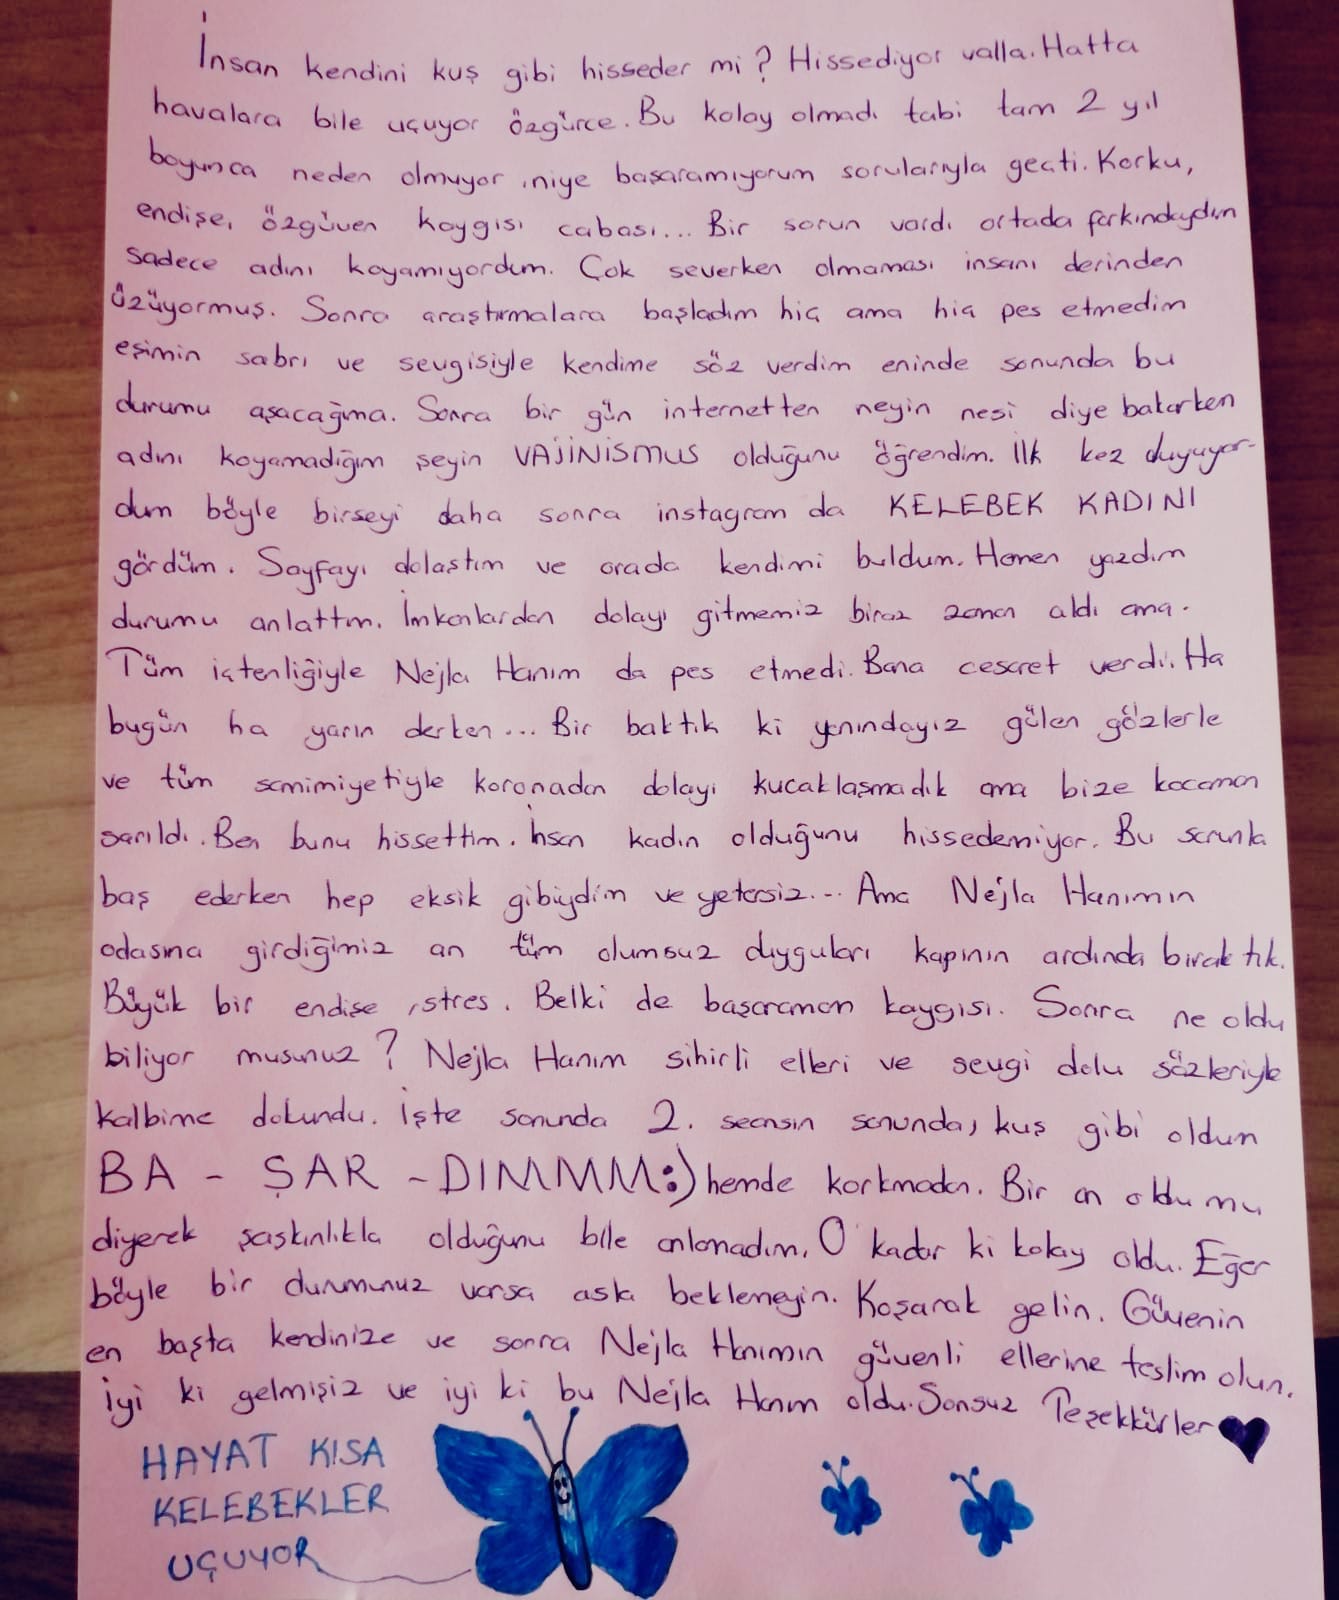 İnsan kendini kuş gibi hisseder mi? Hissediyor valla. Hatta
havalara bile uçuyor özgürce. Bu kolay olmadı tabi tam 2 yıl
boyunca neden olmuyor, niye başaramıyorum sorularıyla geçti. Korku,
endişe, özgüven kaygısı cabası... Bir sorun vardı ortada farkındaydım
sadece adını koyamıyordum. Çok severken olmaması insanı derinden
üzüyormuş. Sonra araştırmalara başladım hiç ama hiç pes etmedim
eşimin sabrı ve sevgisiyle kendime söz verdim eninde sonunda bu
durumu aşacağıma. Sonra bir gün internetten neyin nesi diye bakarken
adını koyamadığım şeyin VAJİNİSMUS olduğunu öğrendim. İlk kez duyuyor-
dum böyle birseyi daha sonra instagram da KELEBEK KADINI
gördüm. Sayfayı dolaştım ve orada kendimi buldum. Hemen yazdım
durumu anlattım. İmkanlardan dolayı gitmemiz biraz zaman aldı ama.
Tüm içtenliğiyle Nejla Hanım da pes etmedi. Bana cesaret verdi. Ha
bugün ha yarın derken... Bir baktık ki yanındayız gülen gözlerle
ve tüm samimiyetiyle koronadan dolayı kucaklaşmadık ama bize kocaman
sarıldı. Ben bunu hissettim. İnsan kadın olduğunu hissedemiyor. Bu sorunla
baş ederken hep eksik gibiydim ve yetersiz... Ama Nejla Hanımın
odasına girdiğimiz an tüm olumsuz duyguları kapının ardında bıraktık.
Büyük bir endişe, stres. Belki de başaramam kaygısı. Sonra ne oldu
biliyor musunuz? Nejla Hanım sihirli elleri ve sevgi dolu sözleriyle
kalbime dokundu. İşte sonunda 2. seansın sonunda, kuş gibi oldum
BA - ŞAR - DIMMMM:) hemde korkmadan. Bir an oldu mu
diyerek şaşkınlıkla olduğunu bile anlamadım. O kadar ki kolay oldu. Eğer
böyle bir durumunuz varsa asla beklemeyin. Koşarak gelin. Güvenin
en başta kendinize ve sonra Nejla Hanımın güvenli ellerine teslim olun.
İyi ki gelmişiz ve iyi ki bu Nejla Hanım oldu. Sonsuz Teşekkürler
HAYAT KISA
KELEBEKLER
UÇUYOR